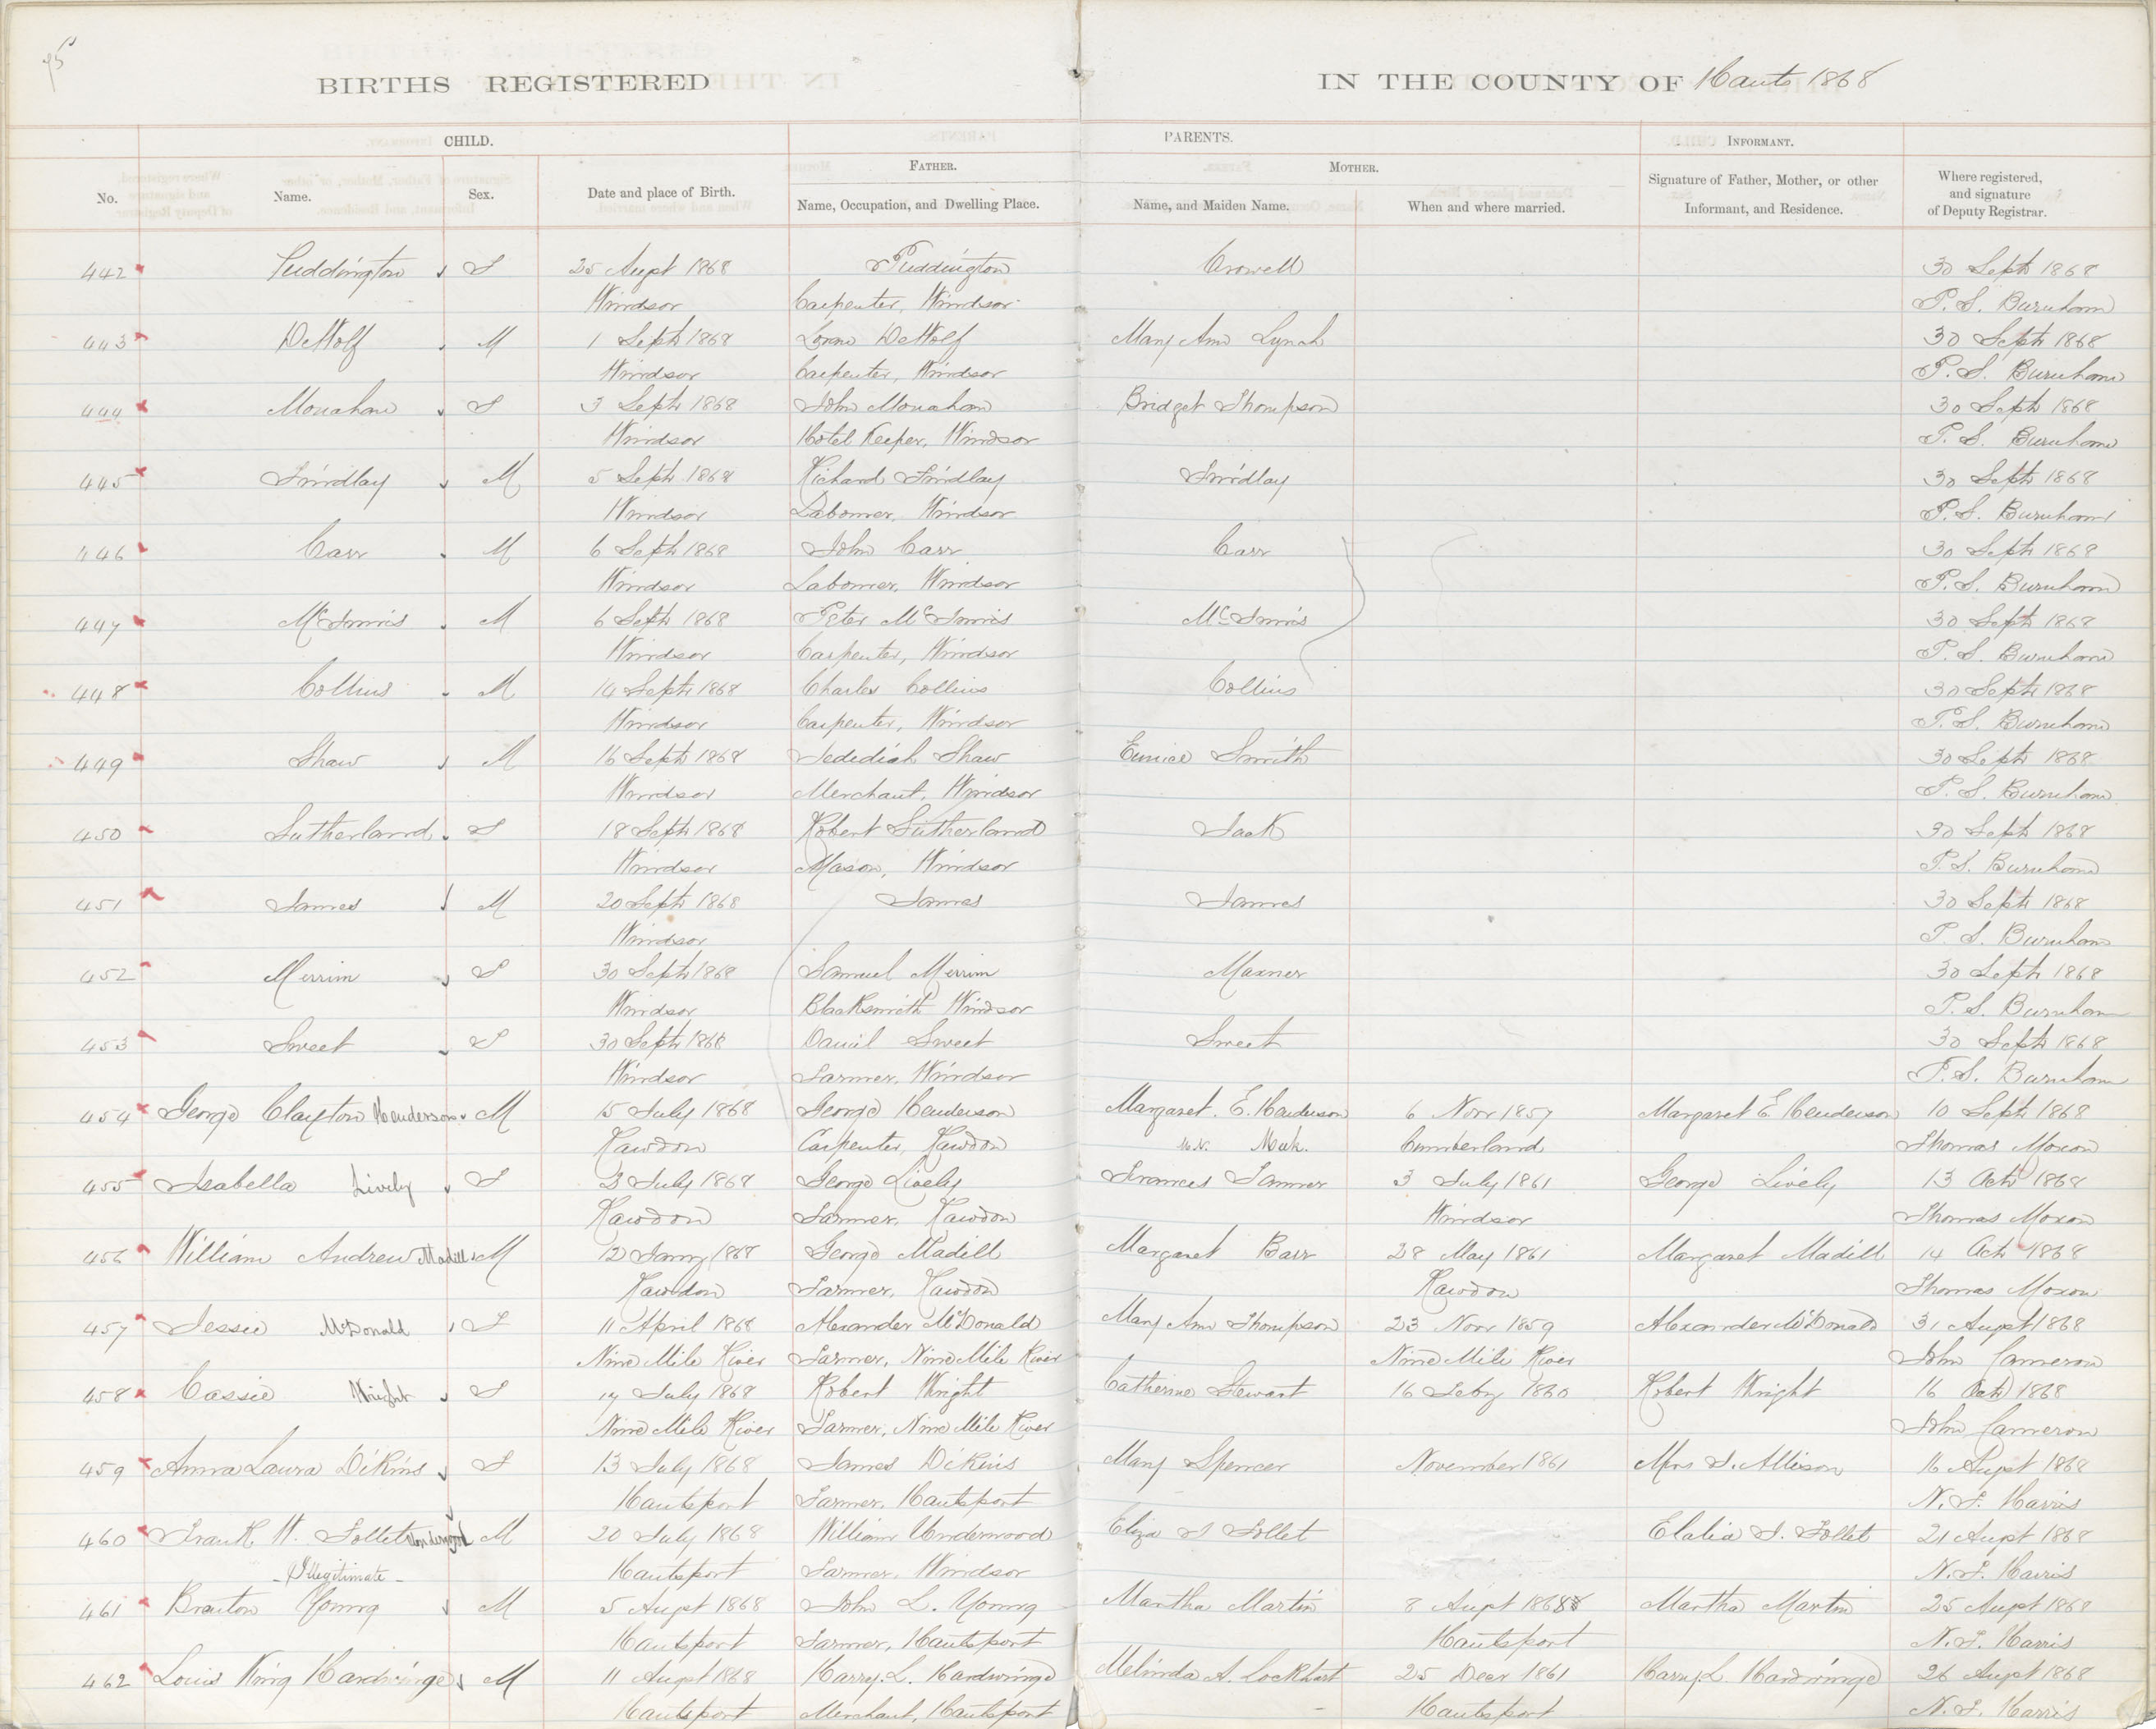 95
BIRTHS REGISTERED IN THE COUNTY OF Hants 1868
CHILD. PARENTS. INFORMANT.
FATHER. MOTHER.
No. Name. Sex. Date and place of Birth. Name, Occupation, and Dwelling Place. Name, and Maiden Name. When and where married. Signature of Father, Mother, or other Informant, and Residence. Where registered, and signature of Deputy Registrar.
442 Puddington F 25 Augst 1868 Puddington Crowell 30 Septr 1868
Windsor Carpenter, Windsor P. S. Burnham
443 DeWolf M 1 Septr 1868 DeWolf Mary Ann Lynch 30 Septr 1868
Windsor Carpenter, Windsor P. S. Burnham
444 Monahan F 3 Septr 1868 John Monahan Bridget Thompson 30 Septr 1868
Windsor Hotel Keeper, Windsor P. S. Burnham
445 Findlay M 5 Septr 1868 Richard Findlay Findlay 30 Septr 1868
Windsor Labourer, Windsor P. S. Burnham
446 Carr M 6 Septr 1868 John Carr Carr 30 Septr 1868
Windsor Labourer, Windsor P. S. Burnham
447 McInnis M 6 Septr 1868 Peter McInnis McInnis 30 Septr 1868
Windsor Carpenter, Windsor P. S. Burnham
448 Collins M 14 Septr 1868 Charles Collins Collins 30 Septr 1868
Windsor Carpenter, Windsor P. S. Burnham
449 Shaw M 16 Septr 1868 Jedediah Shaw Eunice Smith 30 Septr 1868
Windsor Merchant, Windsor P. S. Burnham
450 Sutherland F 18 Septr 1868 Robert Sutherland Jack 30 Septr 1868
Windsor Mason, Windsor P. S. Burnham
451 James M 20 Septr 1868 James James 30 Septr 1868
Windsor P. S. Burnham
452 Merrim F 30 Septr 1868 Samuel Merrim Maxner 30 Septr 1868
Windsor Blacksmith Windsor P. S. Burnham
453 Sweet F 30 Septr 1868 Daniel Sweet Sweet 30 Septr 1868
Windsor Farmer, Windsor P. S. Burnham
454 George Clayton Henderson M 15 July 1868 George Henderson Margaret. E. Henderson 6 Novr 1857 Margaret E Henderson 10 Septr 1868
Rawdon Carpenter, Rawdon M. N. Cumberland Thomas Moxon
455 Isabella Lively F 23 July 1868 George Lively Frances Fanner 3 July 1861 George Lively 13 Octr 1868
Rawdon Farmer, Rawdon Windsor Thomas Moxon
456 William Andrew Madill M 12 Jany 1868 George Madill Margaret Barr 28 May 1861 Margaret Madill 14 Octr 1868
Rawdon Farmer, Rawdon Rawdon Thomas Moxon
457 Jessie McDonald F 11 April 1868 Alexander McDonald Mary Ann Thompson 23 Novr 1859 Alexander McDonald 31 Augst 1868
Nine Mile River Farmer, Nine Mile River Nine Mile River John Cameron
458 Cassie Wright F 17 July 1868 Robert Wright Catherine Stewart 16 Feby 1860 Robert Wright 16 Octr 1868
Nine Mile River Farmer, Nine Mile River John Cameron
459 Anna Laura Dikins F 13 July 1868 James Dikins Mary Spencer November 1861 Mrs J. Allison 16 Augst 1868
Hantsport Farmer, Hantsport N. F. Harris
460 Frank W. Follet Underwood M 20 July 1868 William Underwood Eliza J Follet Elalia J. Follet 21 Augst 1868
- Illegitimate - Hantsport Farmer, Windsor N. F. Harris
461 Brenton Young M 5 Augst 1868 John L. Young Martha Martin 8 Augt Martha Martin 25 Augst 1868
Hantsport Farmer, Hantsport Hantsport N. F. Harris
462 Louis King Hardwinge M 11 Augst 1868 Harry. L. Hardwinge Melinda A. Lockhart 25 Decr 1861 Harry. L. Hardwinge 26 Augst 1868
Hantsport Merchant, Hantsport Hantsport N. F. Harris